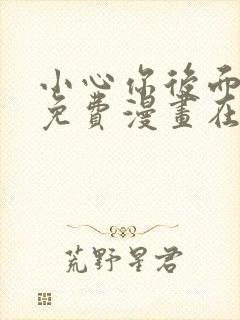 小心你後面
免費漫畫在
荒野星君